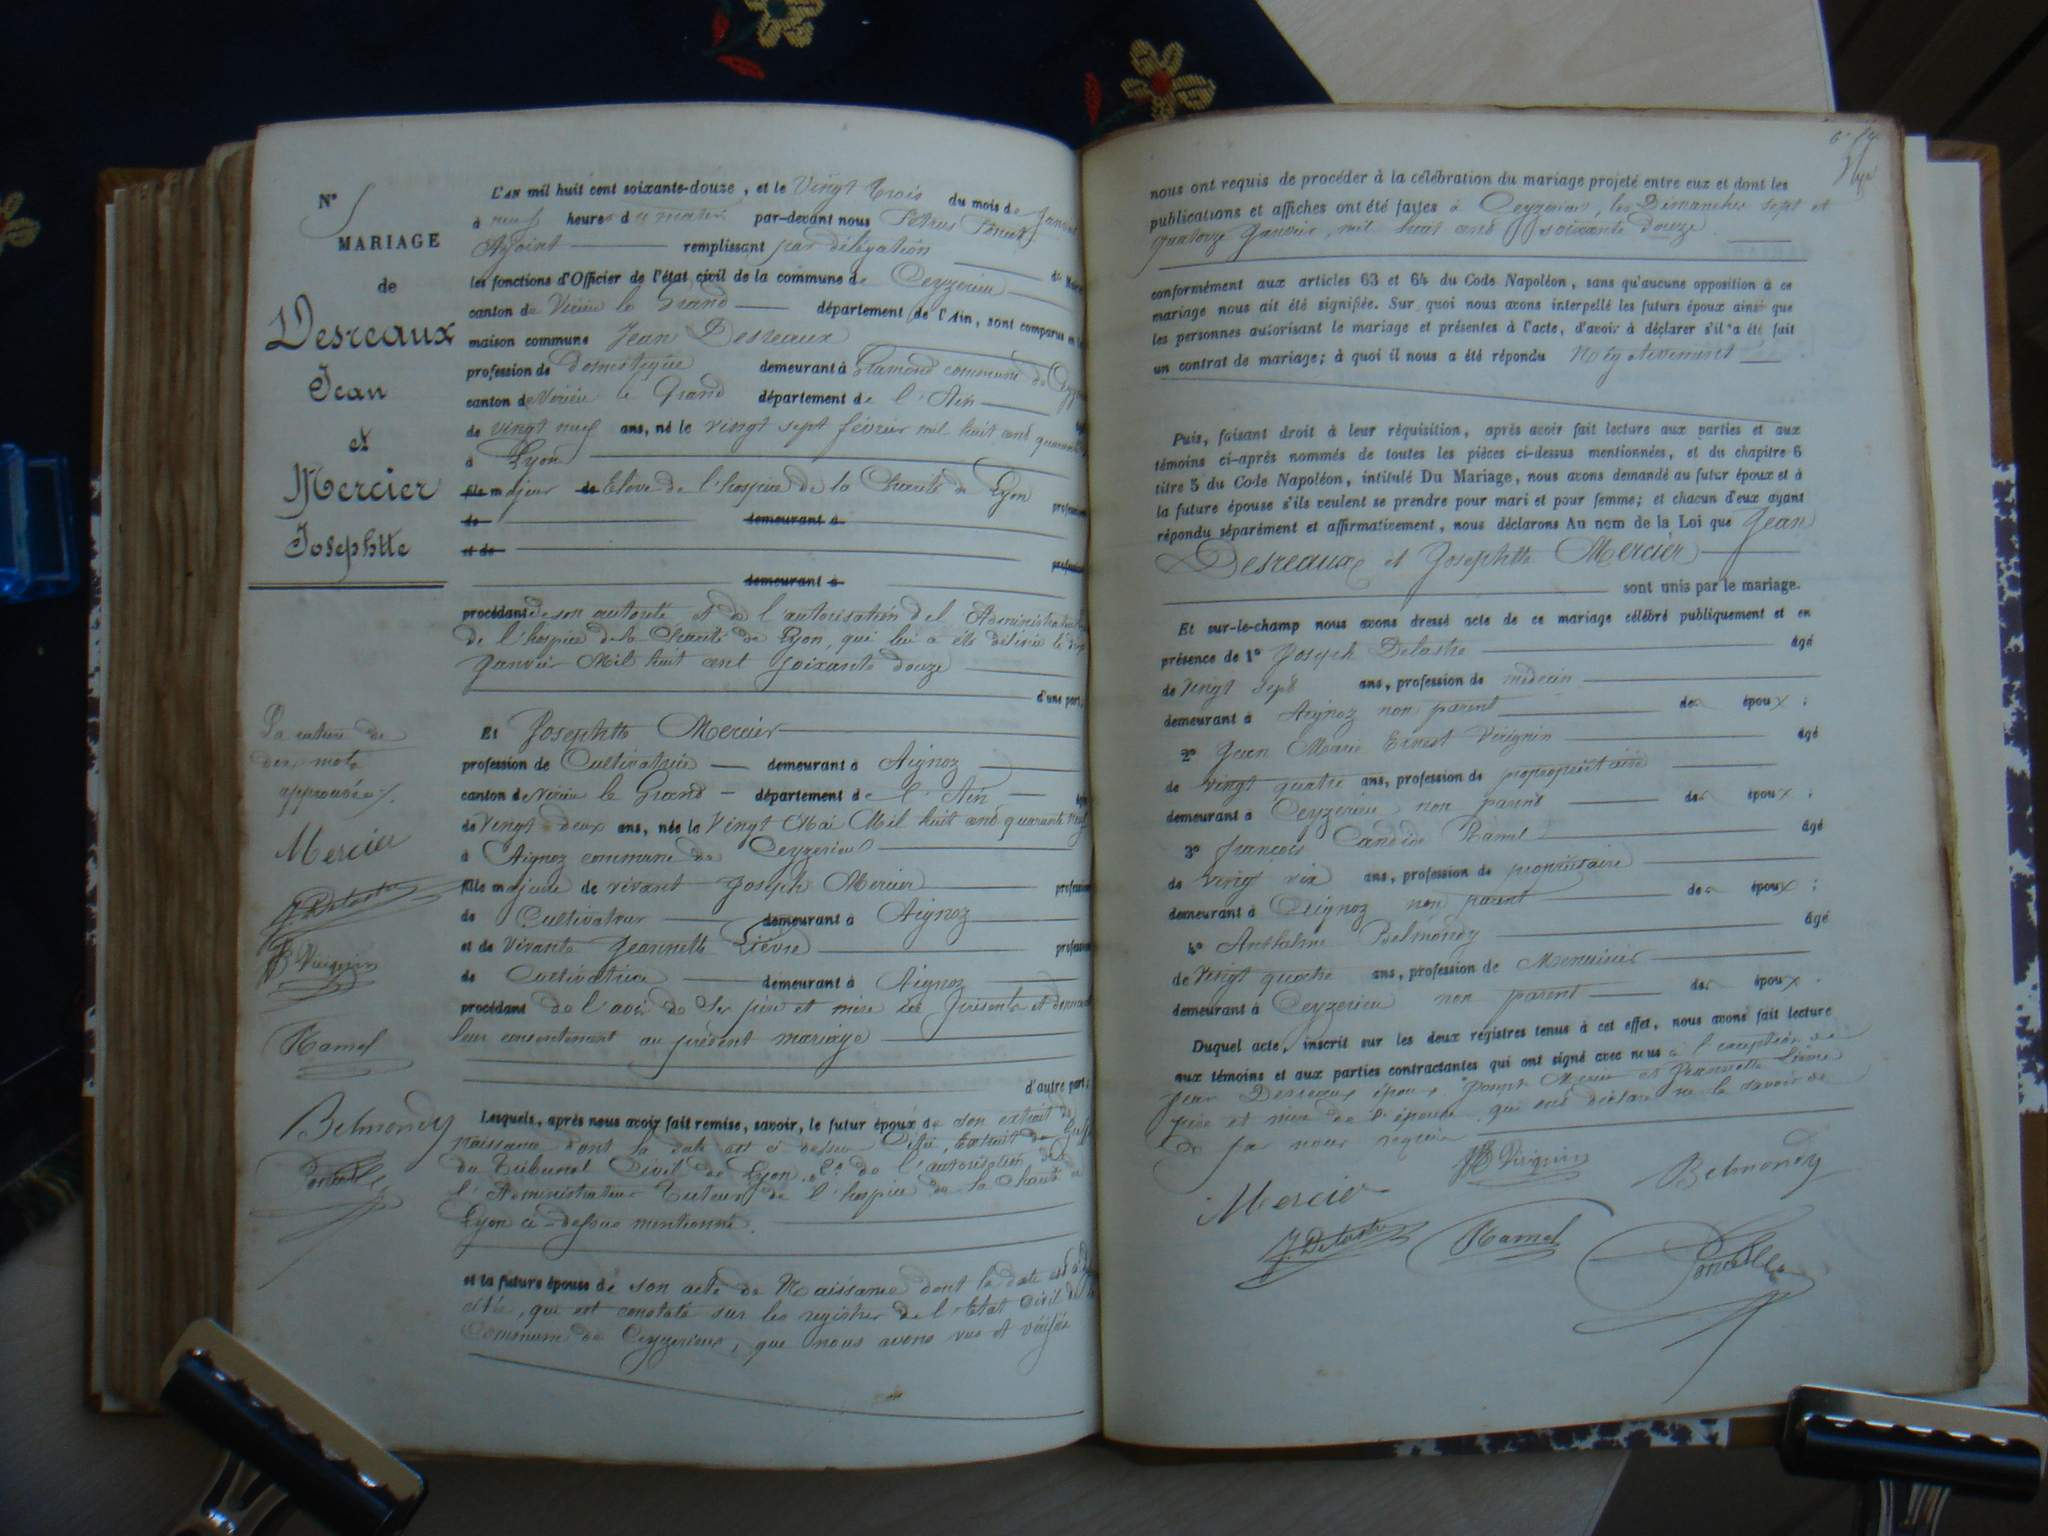 N°
MARIAGE
de
Desreaux
Jean
et
Mercier
Josephtte
L'AN mil huit cent soixante-douze, et le Vingt trois du mois de Janvier
à neuf heures du matin par-devant nous Pétrus
Adjoint remplissant par délégation
les fonctions d'Officier de l'état civil de la commune de Ceyzerieu
canton de Virieu le Grand département de l'Ain, sont comparus en la
maison commune Jean Desreaux
profession de Domestique demeurant à commune de
canton de Virieu le Grand département de l'Ain
de vingt neuf ans, né le vingt sept février mil huit cent
à Lyon
fils majeur de Elève de l'hospice de la Charité de Lyon
de demeurant à
et de
demeurant à
procédant de son autorité et de l'autorisation de l'
de l'hospice de la Charité de Lyon, qui lui a été délivrée le
Janvier Mil huit cent soixante douze
d'une part,
Et Josephtte Mercier
profession de Cultivatrice demeurant à Aignoz
canton de Virieu le Grand département de l'Ain
de Vingt deux ans, née le Vingt Mai Mil huit cent quarante
à Aignoz commune de Ceyzerieu
fille majeure de vivant Joseph Mercier
de Cultivateur demeurant à Aignoz
et de vivante Jeannette Lièvre
de Cultivatrice demeurant à Aignoz
procédant de l'avis de ses père et mère ici présents et
leur consentement au présent mariage
d'autre part;
Lesquels, après nous avoir fait remise, savoir, le futur époux de son extrait de
naissance dont la date est ci dessus, Extrait de
du Tribunal Civil de Lyon, de l'autorisation de
l'Administrateur Tuteur de l'hospice de la Charité de
Lyon ci-dessus mentionné.
et la future épouse de son acte de Naissance dont la date est
citée, que est constaté sur les registres de l'Etat Civil de
Commune de Ceyzerieu, que nous avons vus et vérifiés
La rature de
dix mots
approuvée.
Mercier
J. Delastre
Virignin
Ramel
Belmondy
nous ont requis de procéder à la célébration du mariage projeté entre eux et dont les
publications et affiches ont été faites à Ceyzerieu, les Dimanches sept et
quatorze Janvier, mil huit cent soixante douze
conformément aux articles 63 et 64 du Code Napoléon, sans qu'aucune opposition à ce
mariage nous ait été signifiée. Sur quoi nous avons interpellé les futurs époux ainsi que
les personnes autorisant le mariage et présentes à l'acte, d'avoir à déclarer s'il a été fait
un contrat de mariage; à quoi il nous a été répondu Négativement
Puis, faisant droit à leur réquisition, après avoir fait lecture aux parties et aux
témoins ci-après nommés de toutes les pièces ci-dessus mentionnées, et du chapitre 6
titre 5 du Code Napoléon, intitulé Du Mariage, nous avons demandé au futur époux et à
la future épouse s'ils veulent se prendre pour mari et pour femme; et chacun d'eux ayant
répondu séparément et affirmativement, nous déclarons Au nom de la Loi que Jean
Desreaux et Josephtte Mercier
sont unis par le mariage.
Et sur-le-champ nous avons dressé acte de ce mariage célébré publiquement et en
présence de 1° Joseph Delastre âgé
de vingt sept ans, profession de médecin
demeurant à Aignoz non parent des époux;
2° Jean Marie Ernest Virignin âgé
de vingt quatre ans, profession de propropriétaire
demeurant à Ceyzerieu non parent des époux;
3° François Candide Ramel âgé
de vingt six ans, profession de propriétaire
demeurant à Aignoz non parent des époux;
4° Anthelme Belmondy âgé
de vingt quatre ans, profession de Menuisier
demeurant à Ceyzerieu non parent des époux.
Duquel acte, inscrit sur les deux registres tenus à cet effet, nous avons fait lecture
aux témoins et aux parties contractantes qui ont signé avec nous à l'exception de
Jean Desreaux époux, Joseph Mercier et Jeannette Lièvre
père et mère de l'épouse qui ont déclaré ne le savoir de
ce par nous requis
Virignin
Belmondy
Mercier
J. Delastre
Ramel